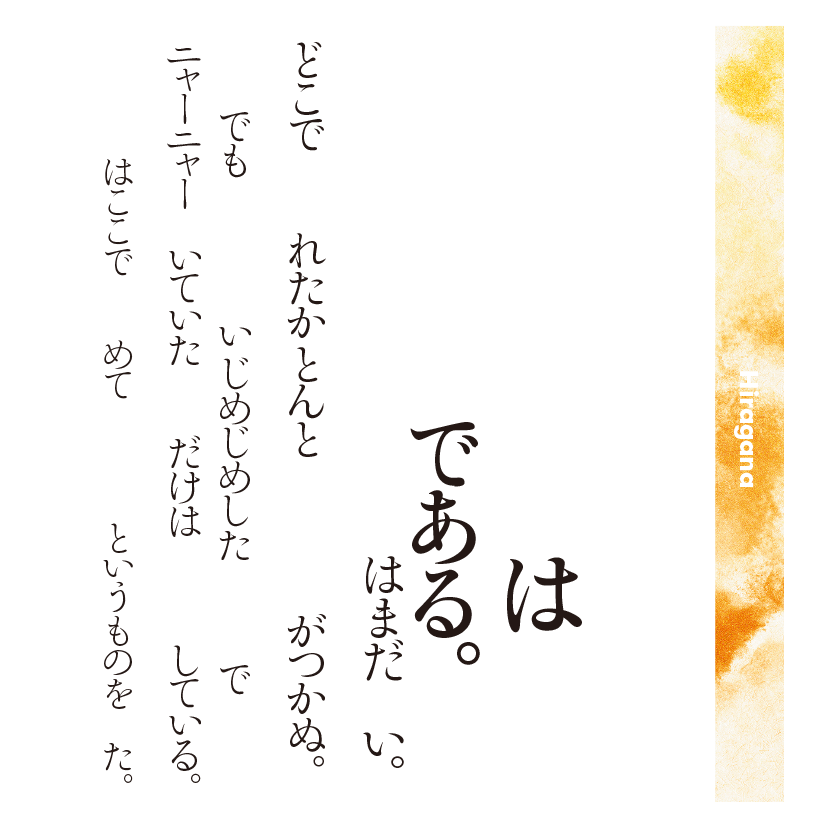 Hiragana
は
である。
はまだ い。
どこで れたかとんと がつかぬ。
でも いじめじめした で
ニャーニャー いていた だけは している。
はここで めて というものを た。